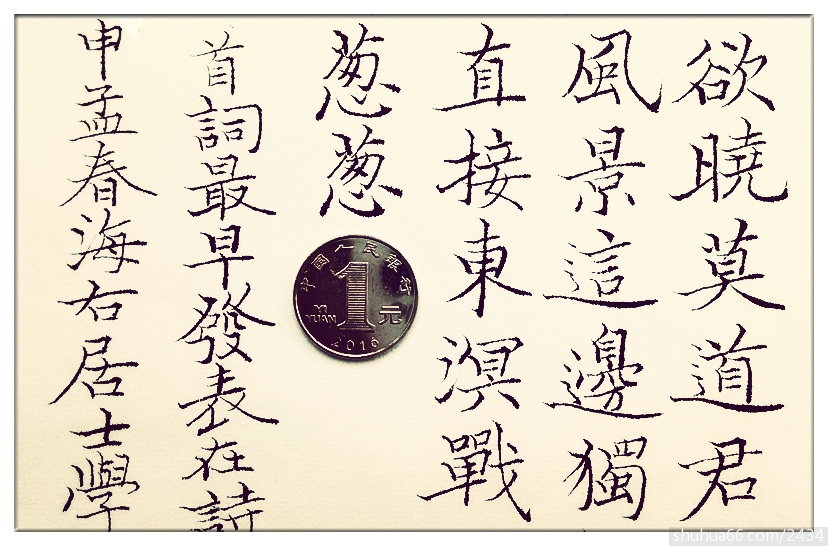 欲曉莫道君
風景這邊獨
直接東溟戰
葱葱
首詞最早發表在詩
申孟春海右居士學
中国人民银行
YI YUAN
1
元
2016
shuhua66.com/2434